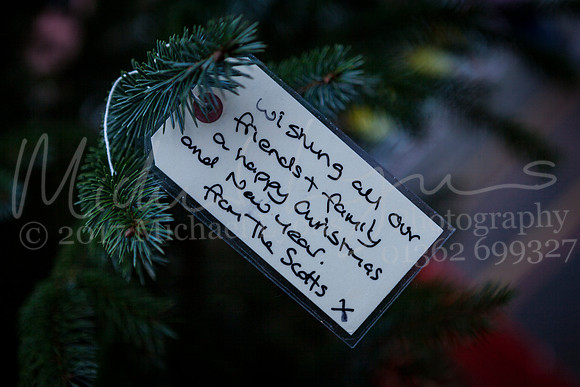 Wishing all our
friends + family
a happy Christmas
and New Year.
from The Scotts
X
Photography
01362 699327